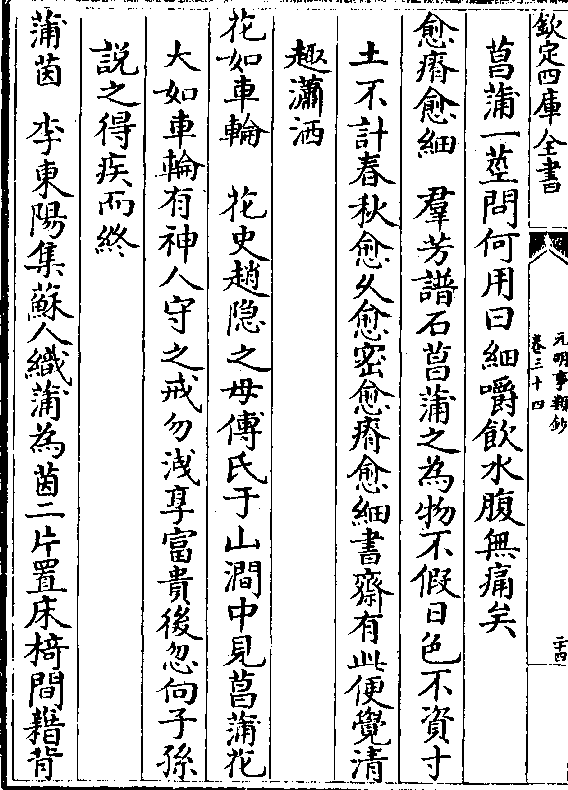 欽定四庫全書
元明事類鈔
卷三十四
二十四
菖蒲一莖問何用曰細嚼飲水腹無痛矣
愈瘠愈細　羣芳譜石菖蒲之為物不假日色不資寸
土不計春秋愈久愈密愈瘠愈細書齋有此便覺清
趣瀟洒
花如車輪　花史趙隐之母傅氏于山澗中見菖蒲花
大如車輪有神人守之戒勿洩享富貴後忽向子孫
説之得疾而終
蒲茵　李東陽集蘇人織蒲為茵二片置床椅間藉背